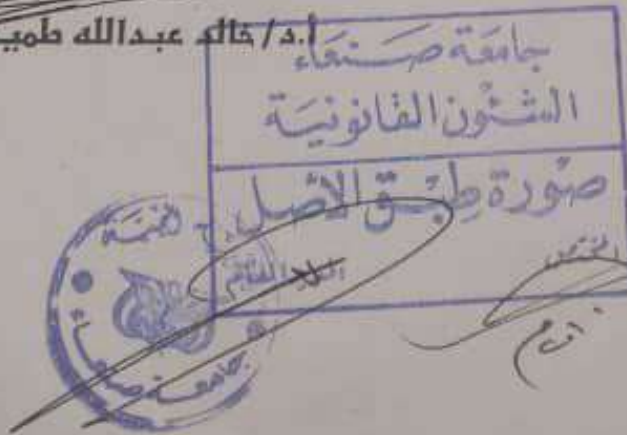 أ.د/ خالد عبدالله طمي
جامعة صنعاء
الشئون القانونية
صورة طبق الأصل
المختص
جامعة صنعاء